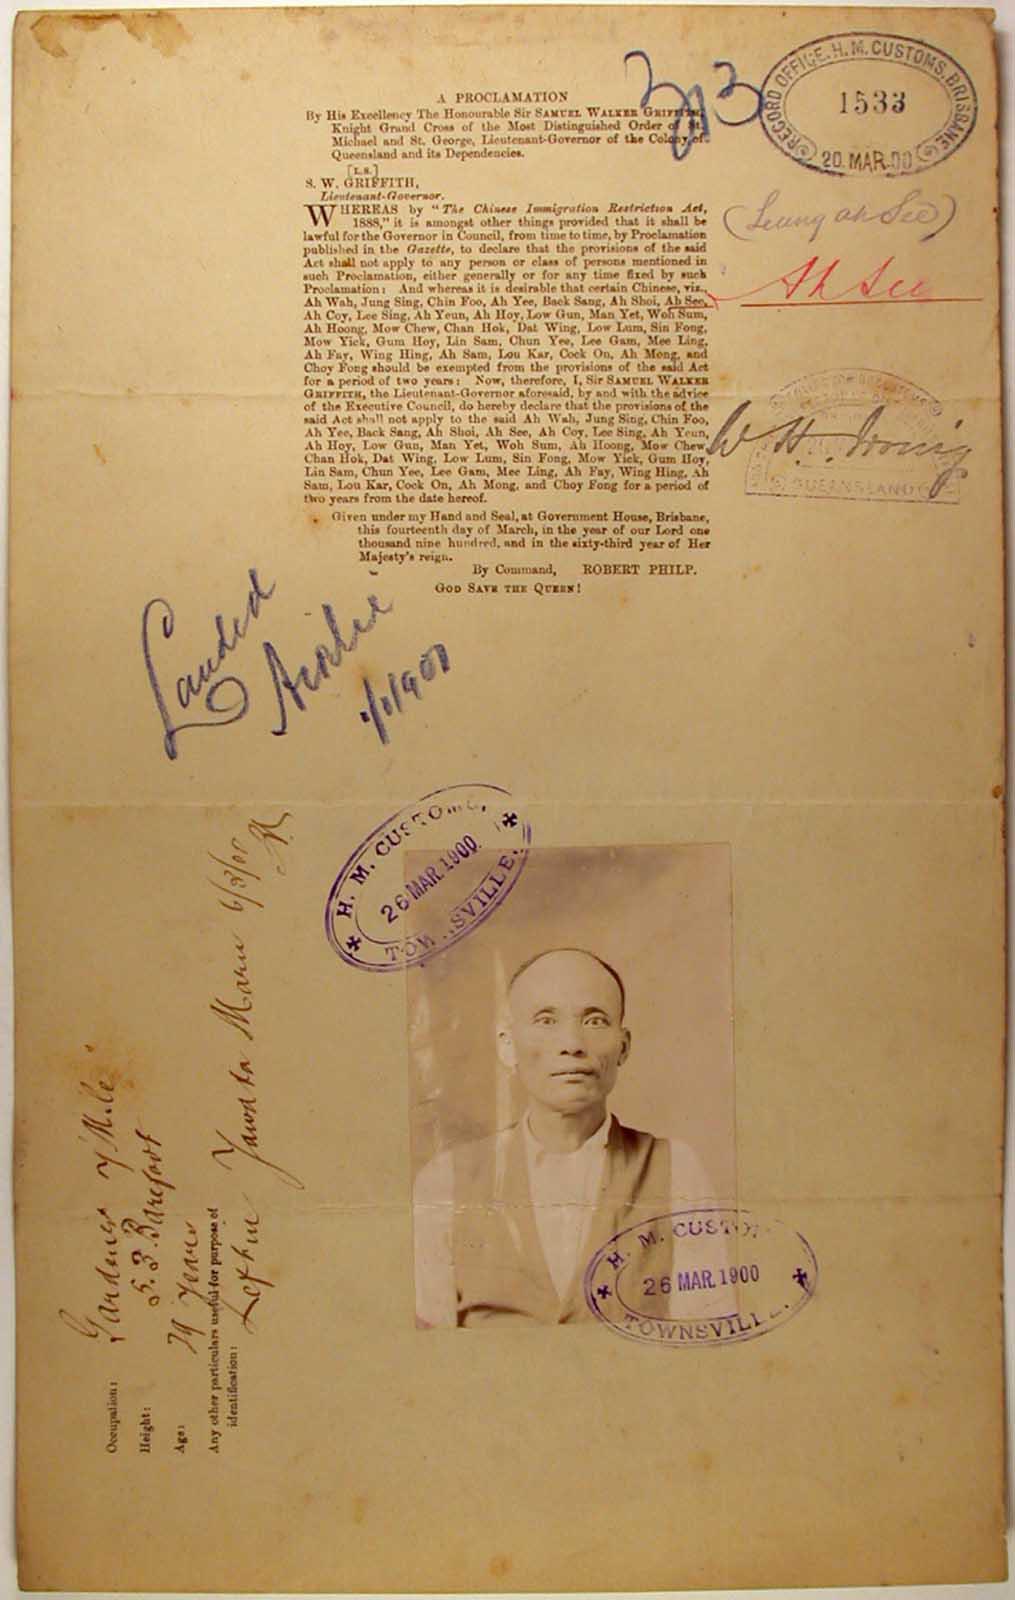 313
RECORD OFFICE. H. M. CUSTOMS. BRISBANE
1533
20. MAR. 00
A PROCLAMATION
By His Excellency The Honourable Sir SAMUEL WALKER GRIFFITH,
Knight Grand Cross of the Most Distinguished Order of St.
Michael and St. George, Lieutenant-Governor of the Colony of
Queensland and its Dependencies.
[L.S.]
S. W. GRIFFITH,
Lieutenant-Governor.
WHEREAS by "The Chinese Immigration Restriction Act,
1888," it is amongst other things provided that it shall be
lawful for the Governor in Council, from time to time, by Proclamation
published in the Gazette, to declare that the provisions of the said
Act shall not apply to any person or class of persons mentioned in
such Proclamation, either generally or for any time fixed by such
Proclamation: And whereas it is desirable that certain Chinese, viz.,
Ah Wah, Jung Sing, Chin Foo, Ah Yee, Back Sang, Ah Shoi, Ah See,
Ah Coy, Lee Sing, Ah Yeun, Ah Hoy, Low Gun, Man Yet, Woh Sum,
Ah Hoong, Mow Chew, Chan Hok, Dat Wing, Low Lum, Sin Fong,
Mow Yick, Gum Hoy, Lin Sam, Chun Yee, Lee Gam, Mee Ling,
Ah Fay, Wing Hing, Ah Sam, Lou Kar, Cock On, Ah Mong, and
Choy Fong should be exempted from the provisions of the said Act
for a period of two years: Now, therefore, I, Sir SAMUEL WALKER
GRIFFITH, the Lieutenant-Governor aforesaid, by and with the advice
of the Executive Council, do hereby declare that the provisions of the
said Act shall not apply to the said Ah Wah, Jung Sing, Chin Foo,
Ah Yee, Back Sang, Ah Shoi, Ah See, Ah Coy, Lee Sing, Ah Yeun,
Ah Hoy, Low Gun, Man Yet, Woh Sum, Ah Hoong, Mow Chew,
Chan Hok, Dat Wing, Low Lum, Sin Fong, Mow Yick, Gum Hoy,
Lin Sam, Chun Yee, Lee Gam, Mee Ling, Ah Fay, Wing Hing, Ah
Sam, Lou Kar, Cock On, Ah Mong, and Choy Fong for a period of
two years from the date hereof.
Given under my Hand and Seal, at Government House, Brisbane,
this fourteenth day of March, in the year of our Lord one
thousand nine hundred, and in the sixty-third year of Her
Majesty's reign.
By Command, ROBERT PHILP.
GOD SAVE THE QUEEN!
(Leung ah See)
Ah See
W. H. Irving
QUEENSLAND
Landed
Airlie
1/1/1901
H. M. CUSTOMS.
26 MAR. 1900
TOWNSVILLE.
H. M. CUSTOMS
26 MAR. 1900
TOWNSVILLE.
Occupation: Gardener 7 Mile
Height: 5.3 Barefoot
Age: 39 Years
Any other particulars useful for purpose of
identification:
Left in Yawata Maru 6/3/00